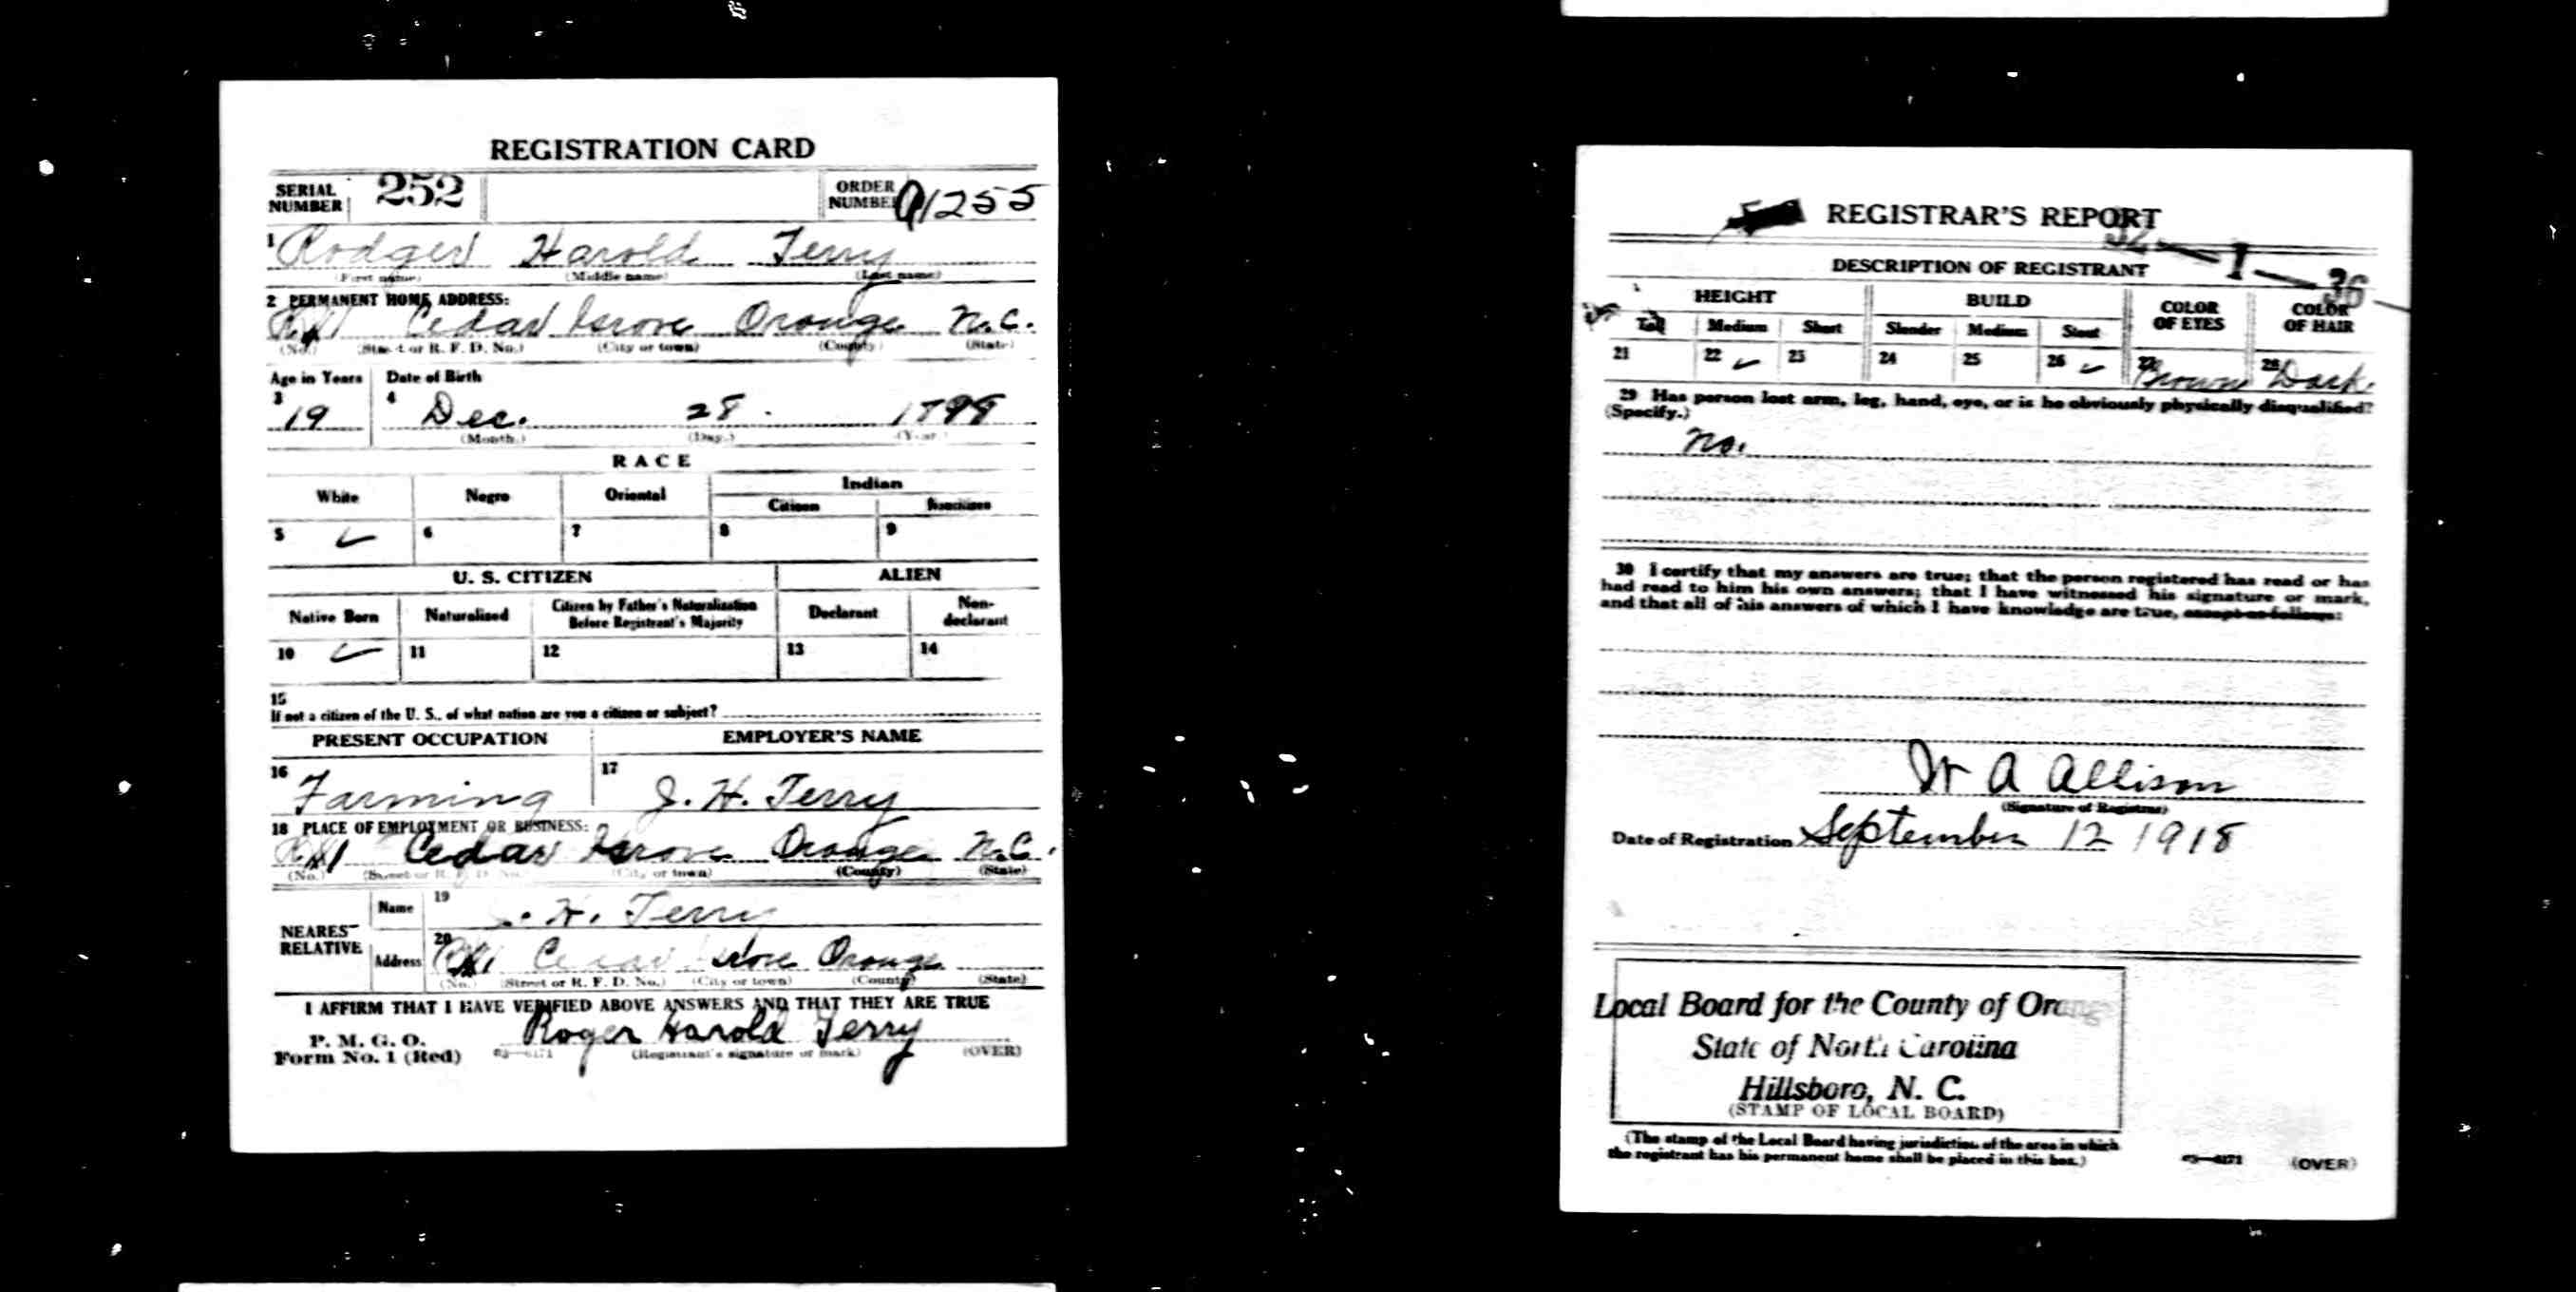 REGISTRATION CARD
SERIAL NUMBER 252 ORDER NUMBER 1255
1 Rodger Harold Terry
(First name) (Middle name) (Last name)
2 PERMANENT HOME ADDRESS:
R#1 Cedar Grove Orange N.C.
(No.) (Street or R. F. D. No.) (City or town) (County) (State)
Age in Years Date of Birth
3 19 4 Dec. 28. 1898
(Month.) (Day.) (Year.)
RACE
White Negro Oriental Indian
Citizen Noncitizen
5 ✓ 6 7 8 9
U. S. CITIZEN ALIEN
Native Born Naturalized Citizen by Father's Naturalization Before Registrant's Majority Declarant Non-declarant
10 ✓ 11 12 13 14
15
If not a citizen of the U. S., of what nation are you a citizen or subject?
PRESENT OCCUPATION EMPLOYER'S NAME
16 Farming 17 J. H. Terry
18 PLACE OF EMPLOYMENT OR BUSINESS:
R#1 Cedar Grove Orange N.C.
(No.) (Street or R. F. D. No.) (City or town) (County) (State)
NEAREST RELATIVE
Name 19 H. Terry
Address 20 R#1 Cedar Grove Orange
(No.) (Street or R. F. D. No.) (City or town) (County) (State)
I AFFIRM THAT I HAVE VERIFIED ABOVE ANSWERS AND THAT THEY ARE TRUE
P. M. G. O.
Form No. 1 (Red) 03—6171 Roger Harold Terry
(Registrant's signature or mark) (OVER)
REGISTRAR'S REPORT
32—1—36
DESCRIPTION OF REGISTRANT
HEIGHT BUILD COLOR OF EYES COLOR OF HAIR
Tall Medium Short Slender Medium Stout
21 22 ✓ 23 24 25 26 ✓ 27 Brown 28 Dark.
29 Has person lost arm, leg, hand, eye, or is he obviously physically disqualified?
(Specify.)
no.
30 I certify that my answers are true; that the person registered has read or has
had read to him his own answers; that I have witnessed his signature or mark,
and that all of his answers of which I have knowledge are true, except as follows:
W A Allison
(Signature of Registrar)
Date of Registration September 12 1918
Local Board for the County of Orange
State of North Carolina
Hillsboro, N. C.
(STAMP OF LOCAL BOARD)
(The stamp of the Local Board having jurisdiction of the area in which
the registrant has his permanent home shall be placed in this box.)
03—6171 (OVER)